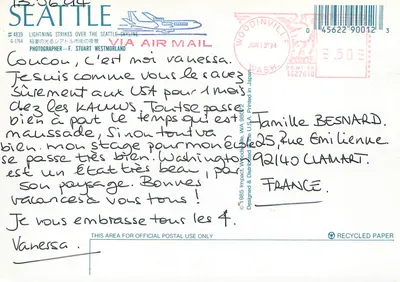 13.06.94
SEATTLE
# 4839 LIGHTNING STRIKES OVER THE SEATTLE SKYLINE
G-1764
PHOTOGRAPHER - F. STUART WESTMORLAND
VIA AIR MAIL
WOODINVILLE
JUN 13'94
WASH.
.50
0 45622 90012 3
Coucou, c'est moi vanessa.
Je suis comme vous le savez
sûrement aux USA pour 1 mois
chez les KAUWS, Tout se passe
bien à part le temps qui est
maussade, sinon tout va
bien. mon stage pour mon école
se passe très bien. Washington
est un État très beau, par
son paysage. Bonnes
vacances à vous tous !
Je vous embrasse tous les 4.
Vanessa.
Famille BESNARD.
25, Rue Emilienne
92140 CLAMART.
FRANCE.
Printed in Japan
THIS AREA FOR OFFICIAL POSTAL USE ONLY
RECYCLED PAPER